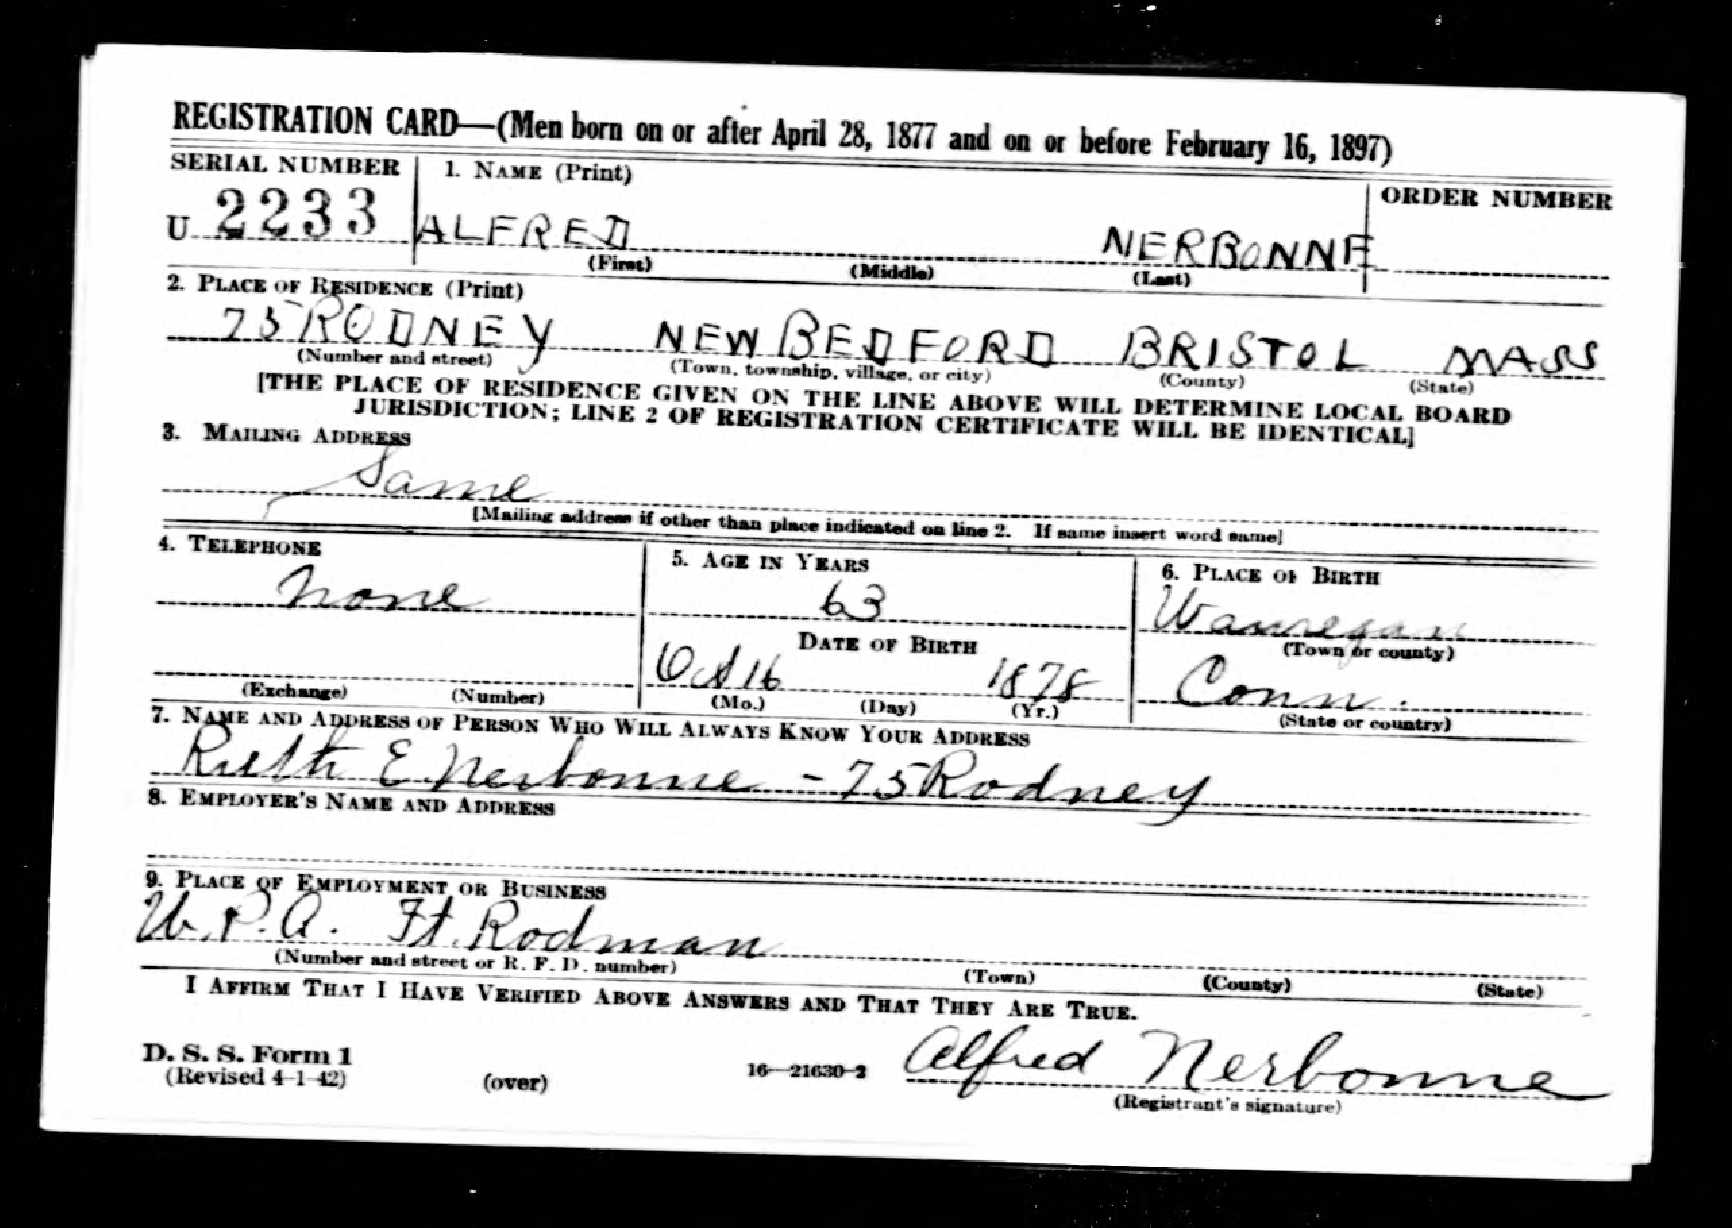 REGISTRATION CARD—(Men born on or after April 28, 1877 and on or before February 16, 1897)
SERIAL NUMBER 1. NAME (Print) ORDER NUMBER
U 2233 ALFRED NERBONNE
(First) (Middle) (Last)
2. PLACE OF RESIDENCE (Print)
75 RODNEY NEW BEDFORD BRISTOL MASS
(Number and street) (Town, township, village, or city) (County) (State)
[THE PLACE OF RESIDENCE GIVEN ON THE LINE ABOVE WILL DETERMINE LOCAL BOARD
JURISDICTION; LINE 2 OF REGISTRATION CERTIFICATE WILL BE IDENTICAL]
3. MAILING ADDRESS
Same
[Mailing address if other than place indicated on line 2. If same insert word same]
4. TELEPHONE 5. AGE IN YEARS 6. PLACE OF BIRTH
None 63 Wauregan
DATE OF BIRTH (Town or county)
Oct 16 1878 Conn.
(Exchange) (Number) (Mo.) (Day) (Yr.) (State or country)
7. NAME AND ADDRESS OF PERSON WHO WILL ALWAYS KNOW YOUR ADDRESS
Ruth E. Nerbonne - 75 Rodney
8. EMPLOYER'S NAME AND ADDRESS
9. PLACE OF EMPLOYMENT OR BUSINESS
W.P.A. Ft. Rodman
(Number and street or R. F. D. number) (Town) (County) (State)
I AFFIRM THAT I HAVE VERIFIED ABOVE ANSWERS AND THAT THEY ARE TRUE.
D. S. S. Form 1
(Revised 4-1-42) (over) 16—21630-2 Alfred Nerbonne
(Registrant's signature)